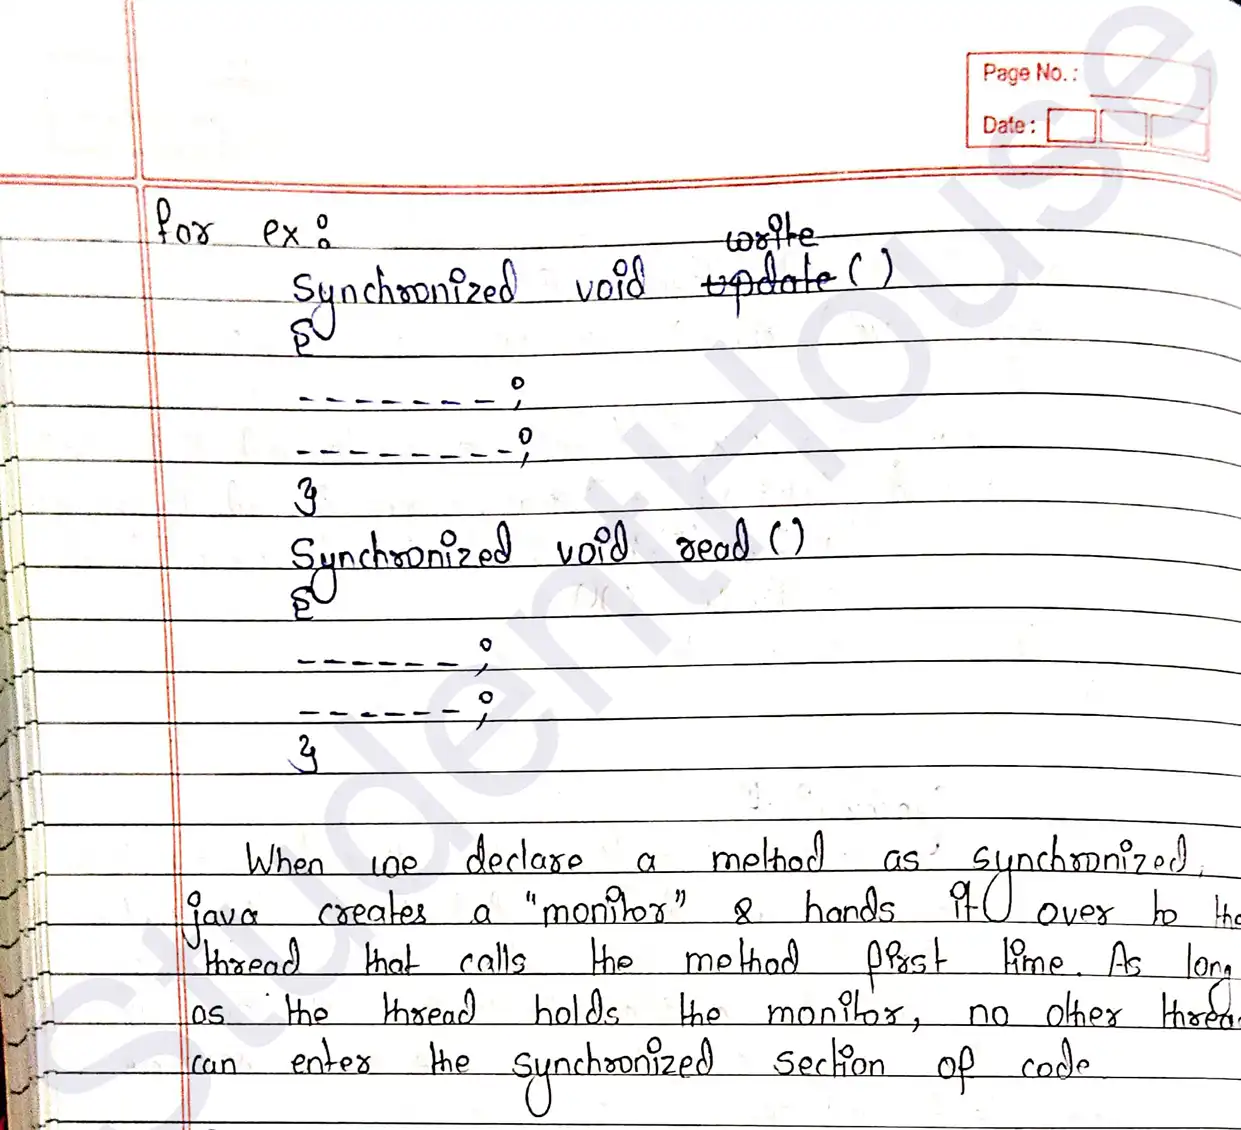 Page No.:
Date:
for ex:
write
Synchronized void update()
{
-------;
--------;
}
Synchronized void read()
{
------;
------;
}
When we declare a method as synchronized,
java creates a "monitor" & hands it over to the
thread that calls the method first time. As long
as the thread holds the monitor, no other thread
can enter the synchronized section of code
StudentHouse